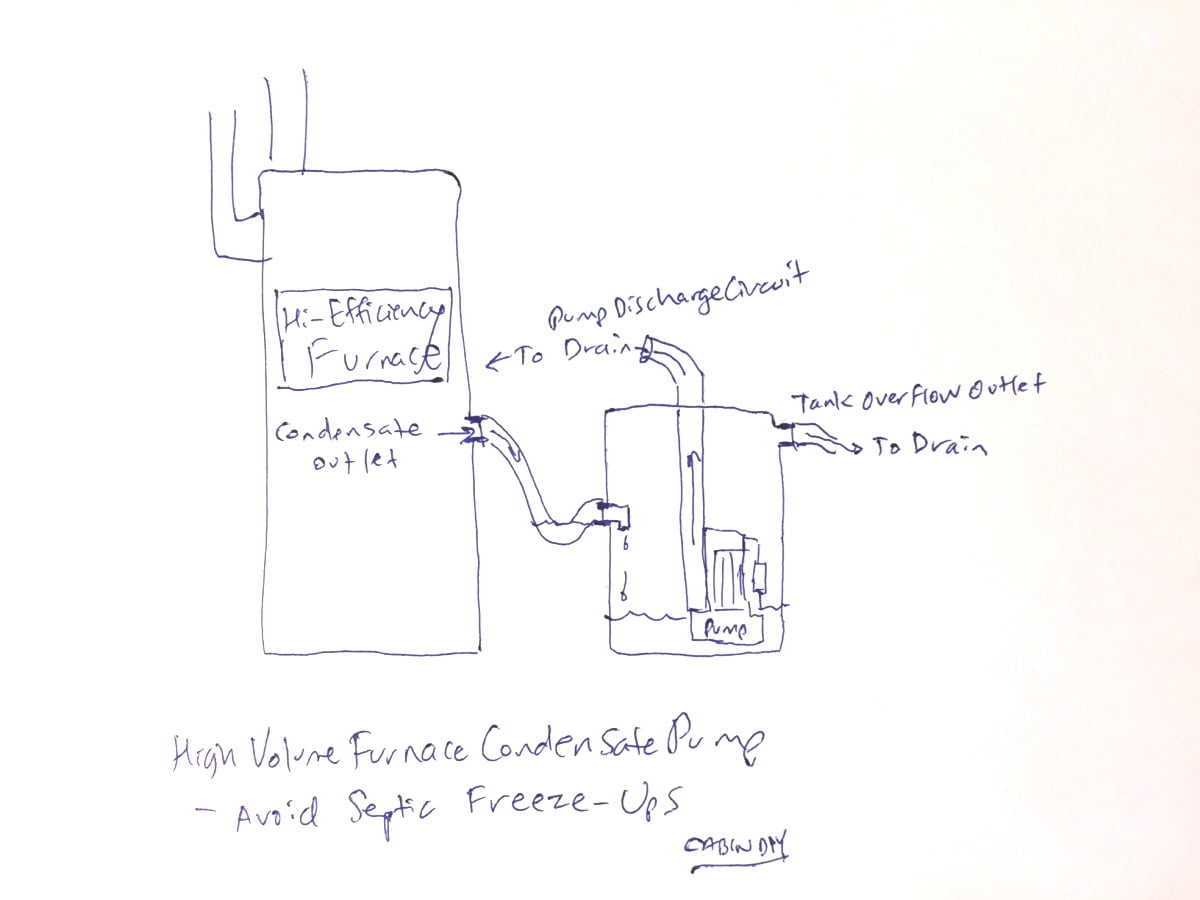 Hi-Efficiency
Furnace
Condensate
outlet
Pump Discharge Circuit
To Drain
Tank Overflow Outlet
To Drain
Pump
High Volume Furnace Condensate Pump
- Avoid Septic Freeze-Ups
CABIN DIY